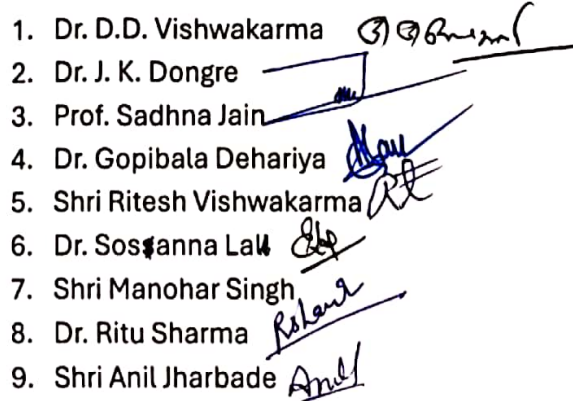 1. Dr. D.D. Vishwakarma
2. Dr. J. K. Dongre
3. Prof. Sadhna Jain
4. Dr. Gopibala Dehariya
5. Shri Ritesh Vishwakarma
6. Dr. Sosanna Lal
7. Shri Manohar Singh
8. Dr. Ritu Sharma RSharma
9. Shri Anil Jharbade Anil